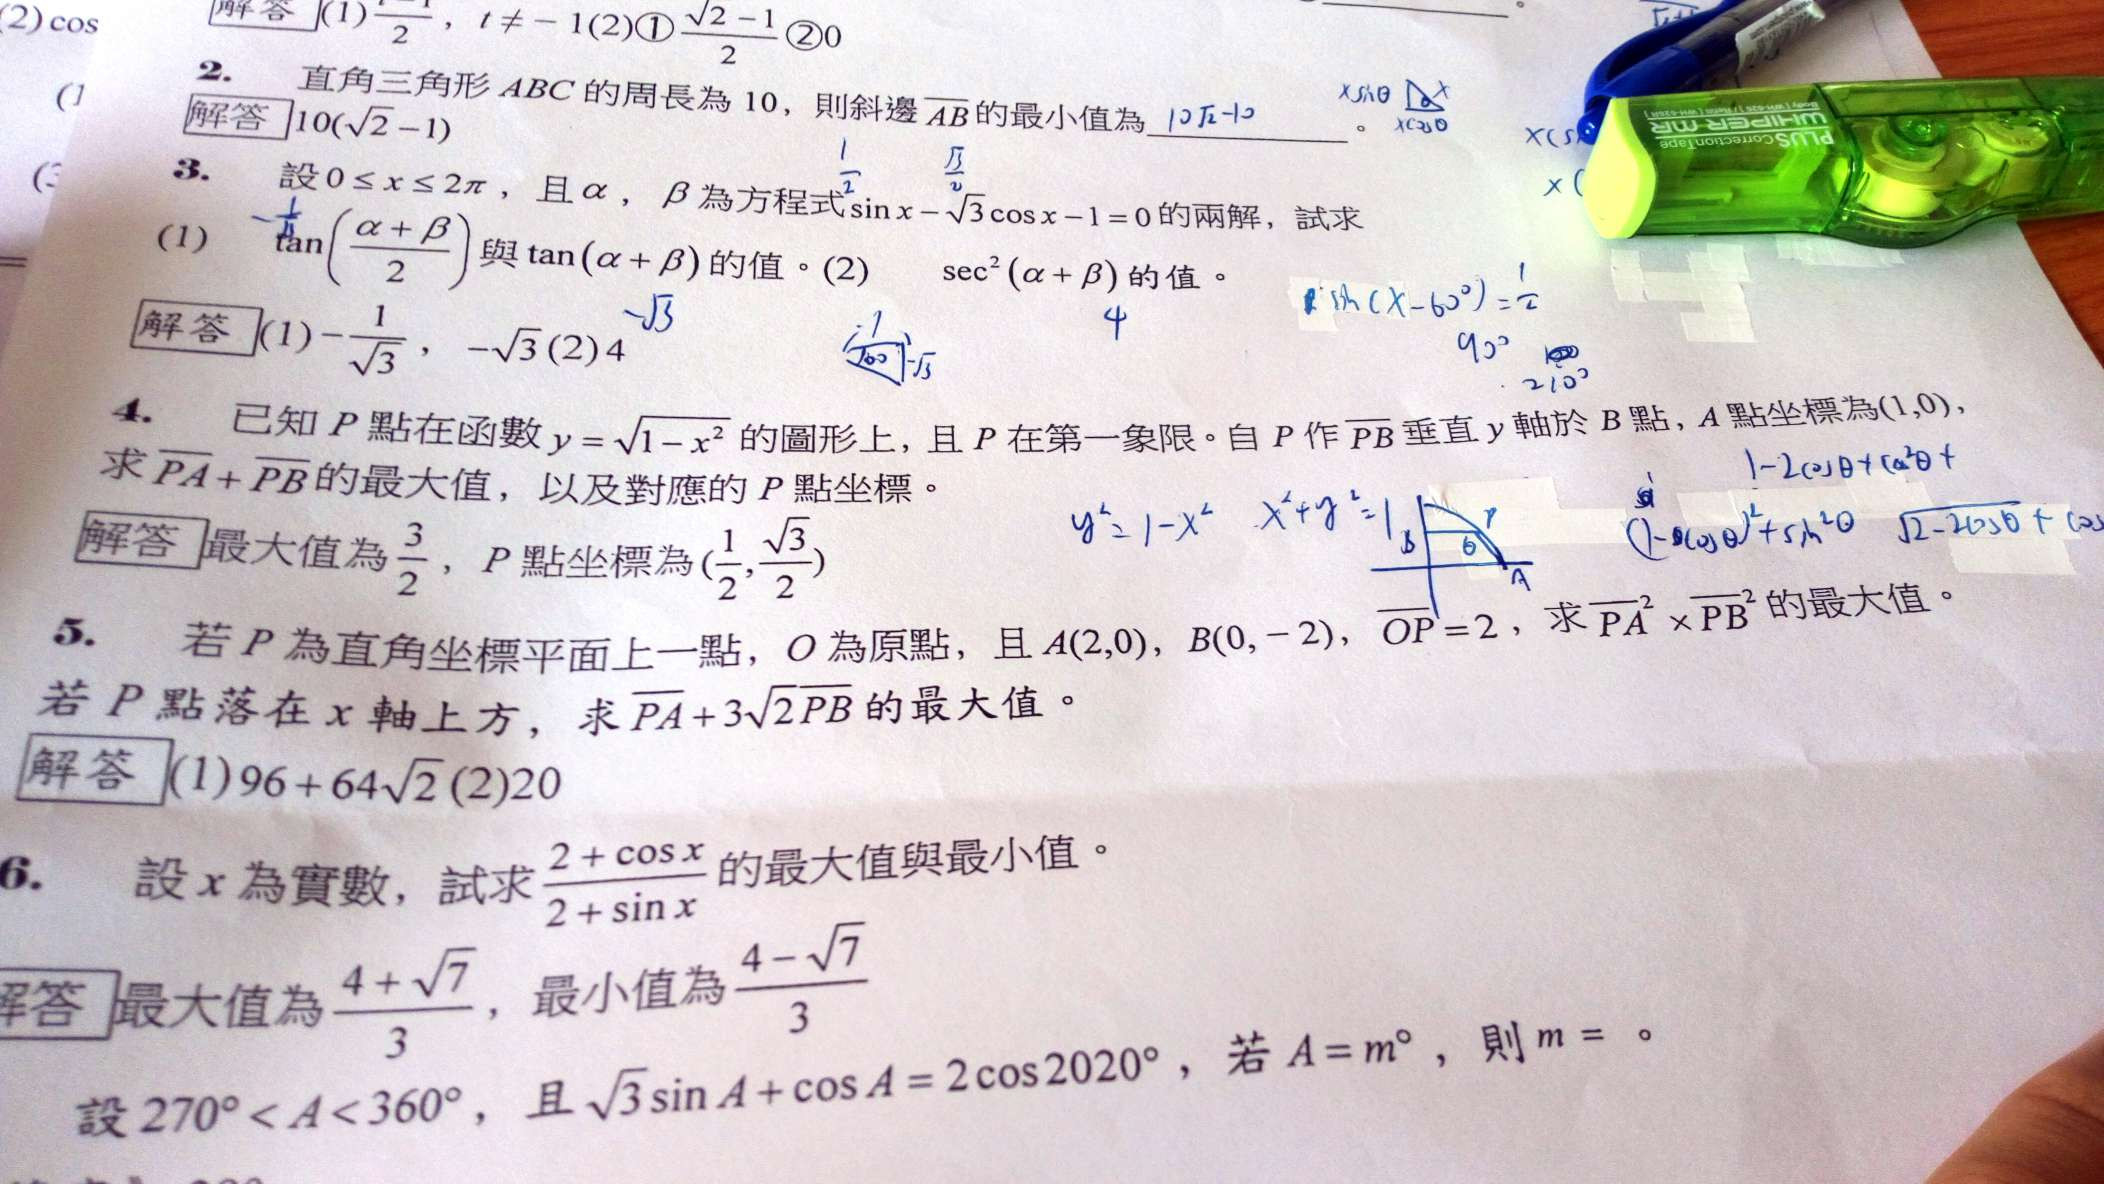 (2) cos
解答 (1) , t ≠ − 1(2)① (√2 − 1)/2 ②0
2. 直角三角形 ABC 的周長為 10，則斜邊 AB 的最小值為 10√2-10 。
xsinθ x
xcosθ
解答 10(√2 − 1)
1/2 √3/2
3. 設 0 ≤ x ≤ 2π，且 α，β 為方程式 sin x − √3 cos x − 1 = 0 的兩解，試求
(1) tan((α + β)/2) 與 tan(α + β) 的值。(2) sec²(α + β) 的值。
sin(x-60°) = 1/2
90°
210°
-√3
4
解答 (1) − 1/√3 ， −√3 (2) 4
-1
-√3
4. 已知 P 點在函數 y = √(1 − x²) 的圖形上，且 P 在第一象限。自 P 作 PB 垂直 y 軸於 B 點，A 點坐標為(1,0)，
求 PA + PB 的最大值，以及對應的 P 點坐標。
1-2cosθ+cos²θ+
y²=1-x² x²+y²=1
B P θ A
(1-cosθ)²+sin²θ √(2-2cosθ) + cos
解答 最大值為 3/2 ，P 點坐標為 (1/2, √3/2)
5. 若 P 為直角坐標平面上一點，O 為原點，且 A(2,0)，B(0, − 2)，OP = 2，求 PA² × PB² 的最大值。
若 P 點落在 x 軸上方，求 PA + 3√2 PB 的最大值。
解答 (1) 96 + 64√2 (2) 20
6. 設 x 為實數，試求 (2 + cos x)/(2 + sin x) 的最大值與最小值。
解答 最大值為 (4 + √7)/3 ，最小值為 (4 − √7)/3
設 270° < A < 360°，且 √3 sin A + cos A = 2 cos 2020°，若 A = m°，則 m = 。
PLUS Correction Tape
WHIPER MR